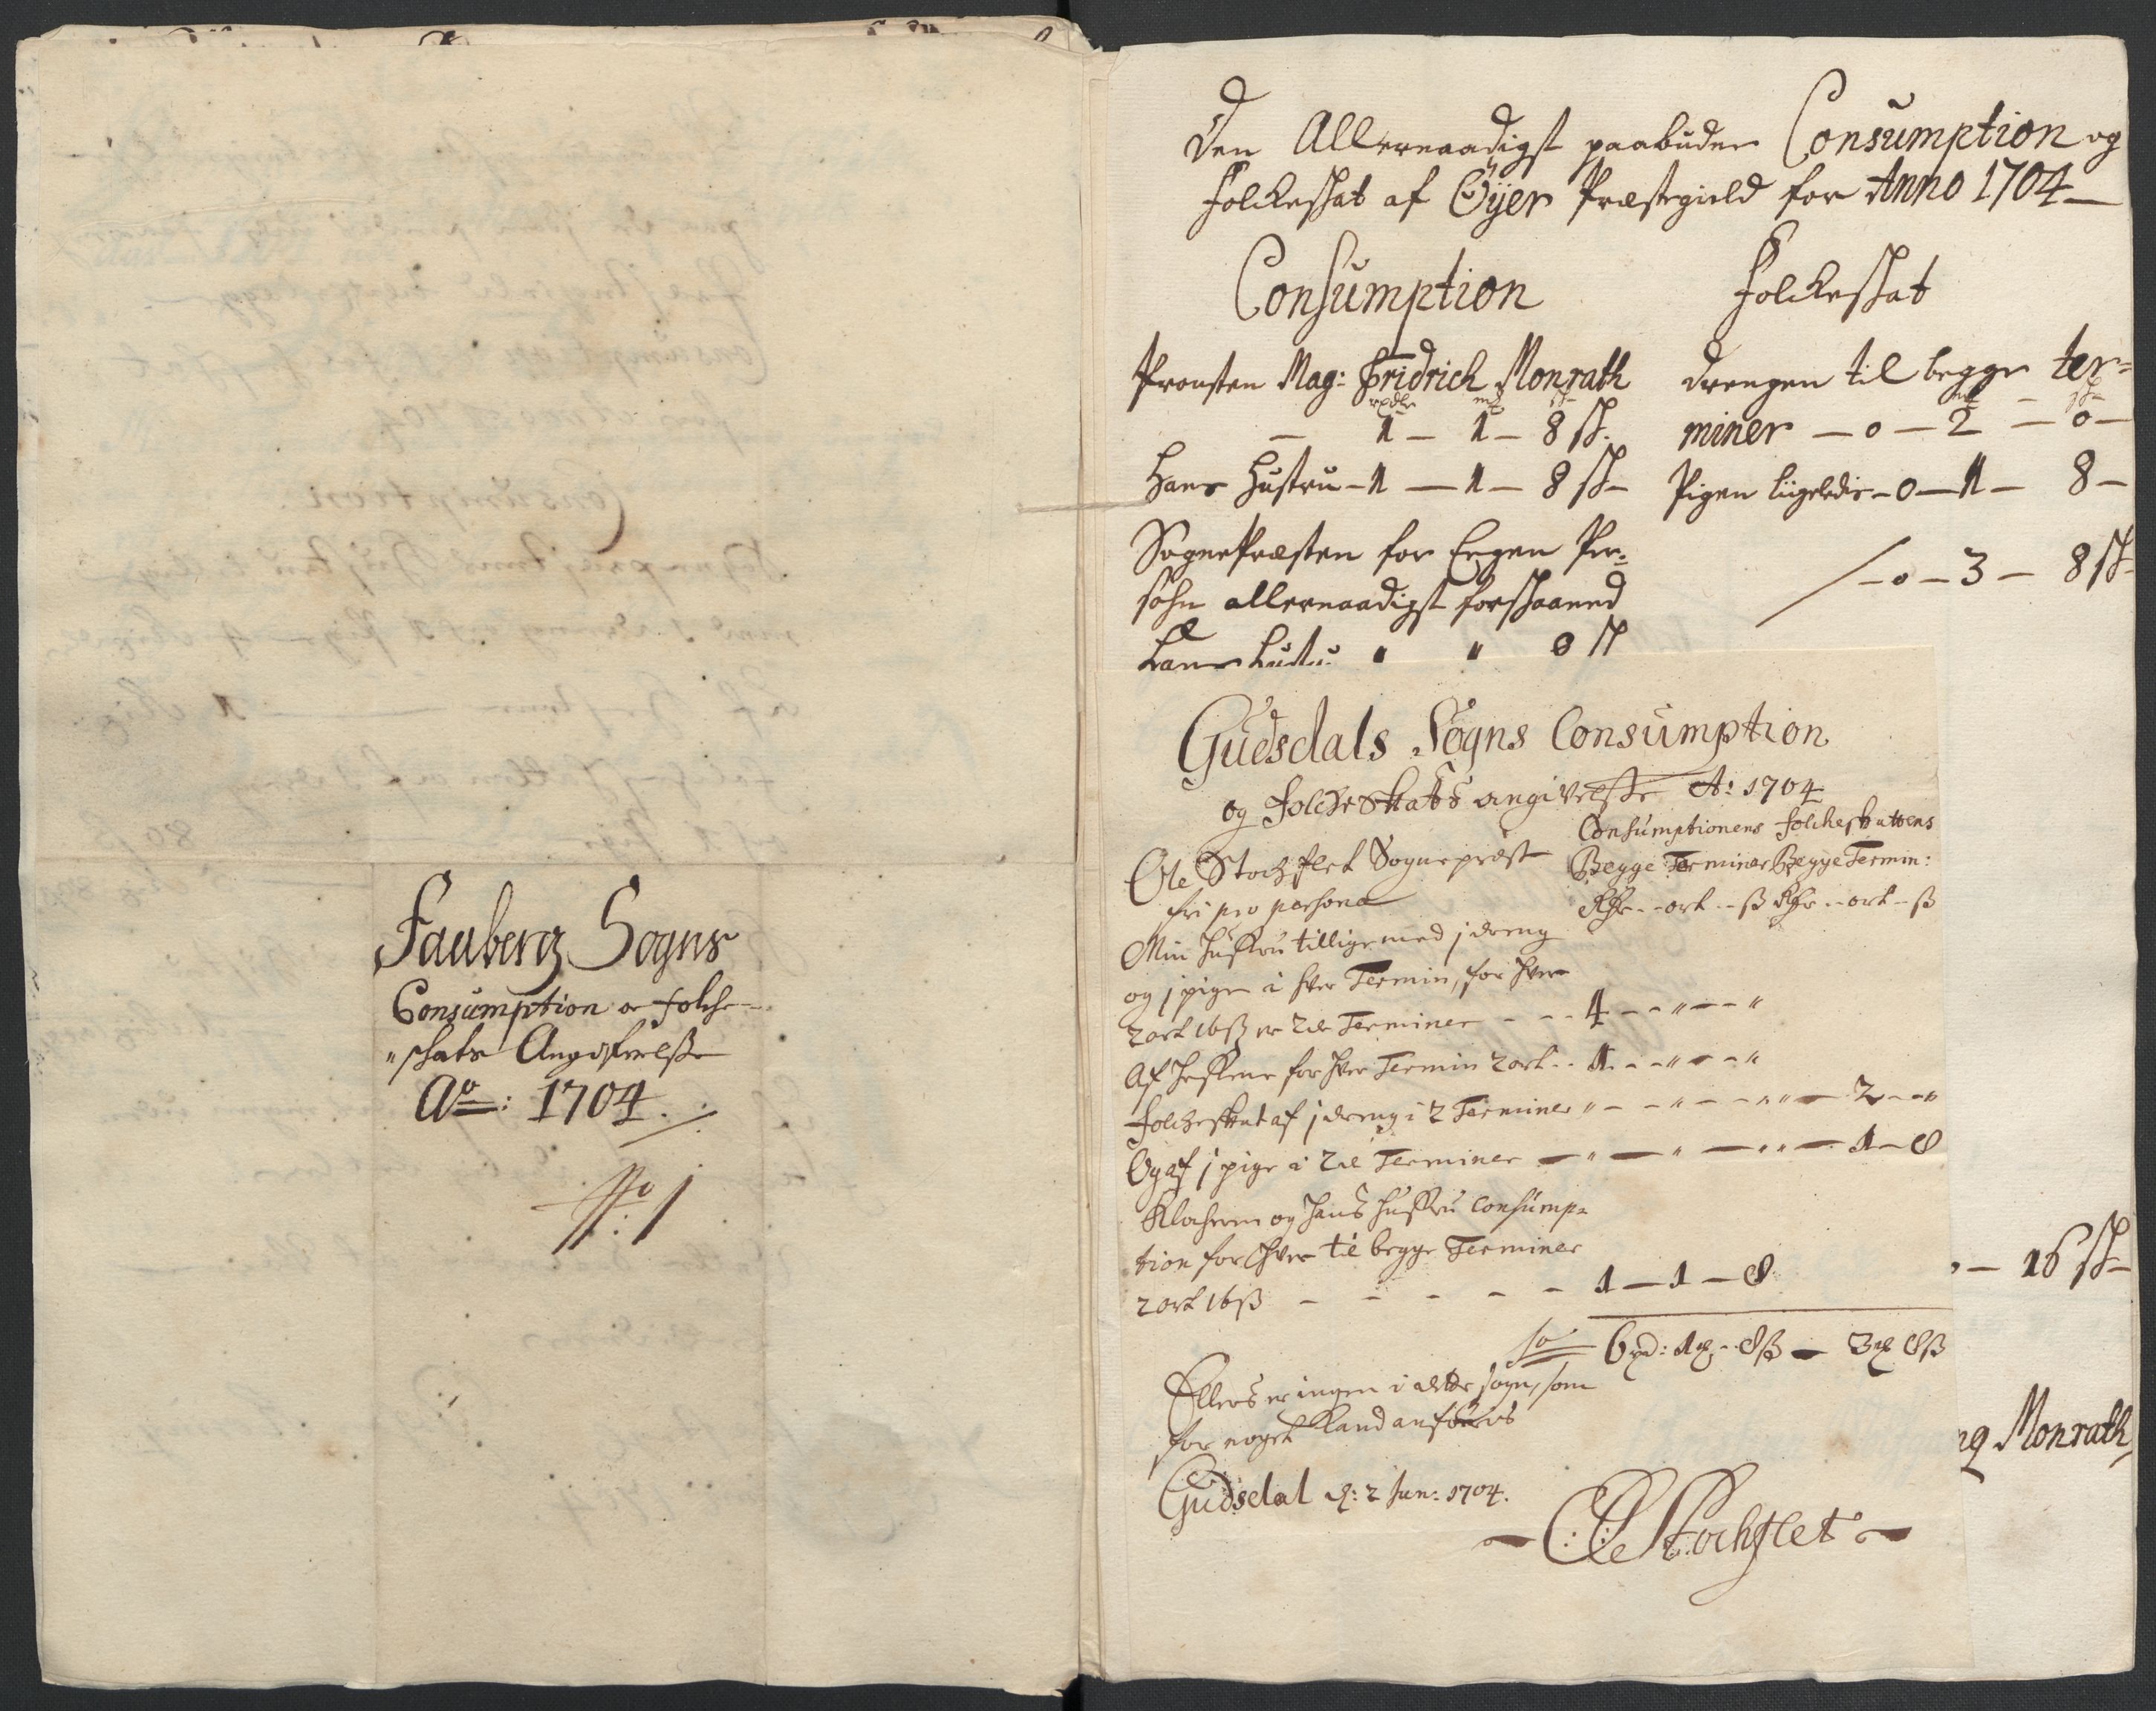 Fauberg Sogns
Consumption og folche-
"schats Angifvelsse
Ao: 1704.
No: 1
Den Allernaadigst paabudne Consumption og
Folckeskat af Öÿer Præstegield for Anno 1704
Consumption Folckeskat
Provsten Mag: Fridrich Monrath
rixdlr mk sk
1 – 1 – 8 sk.
Hans Hustru – 1 – 1 – 8 sk –
SognePræsten for Eegen Per=
sohn allernaadigst forskaaned
Hans Hustru " " 8 sk
Drengen til begge ter=
miner – 0 – 2 – 0 –
Pigen ligeledis – 0 – 1 – 8 –
– 0 – 3 – 8 sk
Gudsdals Sogns Consumption
og Folcke Skats angivelsse Ao: 1704
Consumptionens folckeskattens
Begge Terminer Begge Termin:
Rdr - - ort - - ß Rdr - - ort - ß
Ole Stochflet Sognepræst
fri pro persona
Min Hustru tillige med j dreng
og j pige i hver Termin, for hver
2 ort 16 ß er 2de Terminer - - - 4 - - " - - "
Af Hestene for hver Termin 2 ort - - 1 - - " - - "
Folckeskat af j dreng i 2 Terminer " - - " - - " " - 2 - - "
Og af j pige i 2de Terminer - " - " - " " - 1 - 8
Klocheren og hans hustru Consump=
tion for hver til begge Terminer
2 ort 16 ß - - - - - 1 - 1 - 8
Sa 6 rd: 1 mk - 8 ß - 3 mk 8 ß
Ellers er ingen i dette sogn, som
for noget kand anföres
Gudsdal d: 2 Jun: 1704.
Ole Stochflet
– 16 sk –
Monrath